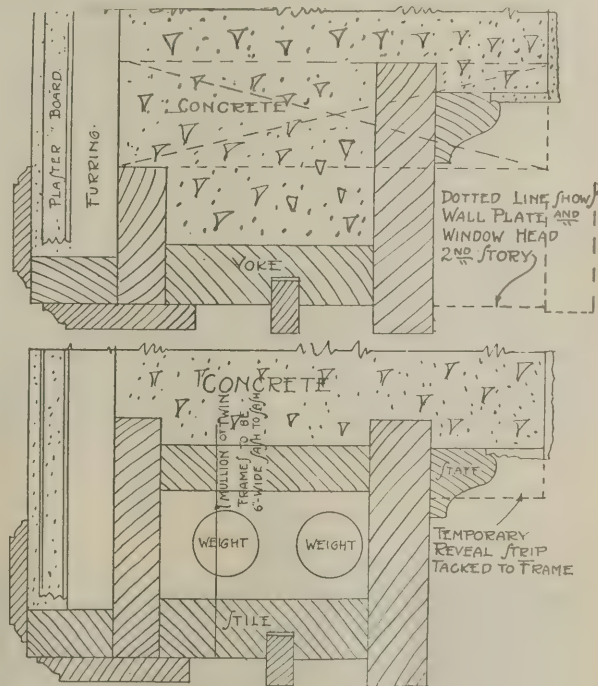 PLASTER BOARD.
FURRING.
CONCRETE
DOTTED LINE SHOWS
WALL PLATE AND
WINDOW HEAD
2ND STORY
YOKE
CONCRETE
MULLION OF TWIN
FRAMES TO BE
6" WIDE SASH TO SASH
STAFF
WEIGHT
WEIGHT
TEMPORARY
REVEAL STRIP
TACKED TO FRAME
STILE